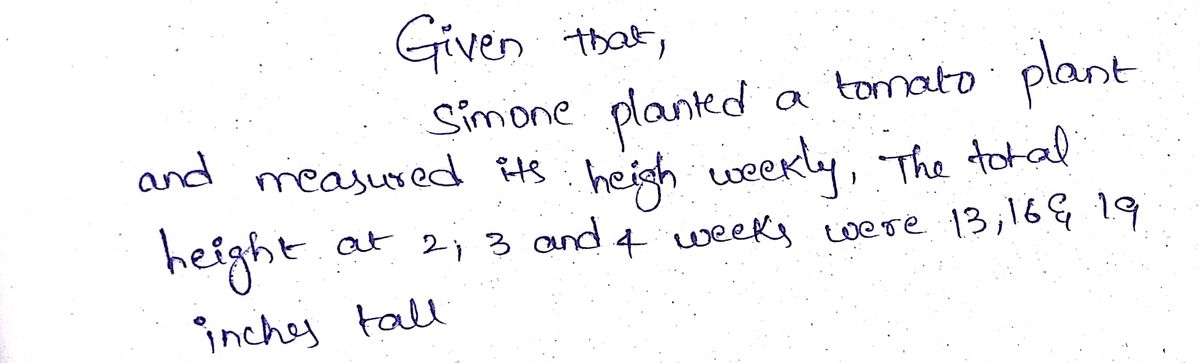 Given that,
Simone planted a tomato plant
and measured its heigh weekly, The total
height at 2, 3 and 4 weeks were 13, 16 & 19
inches tall